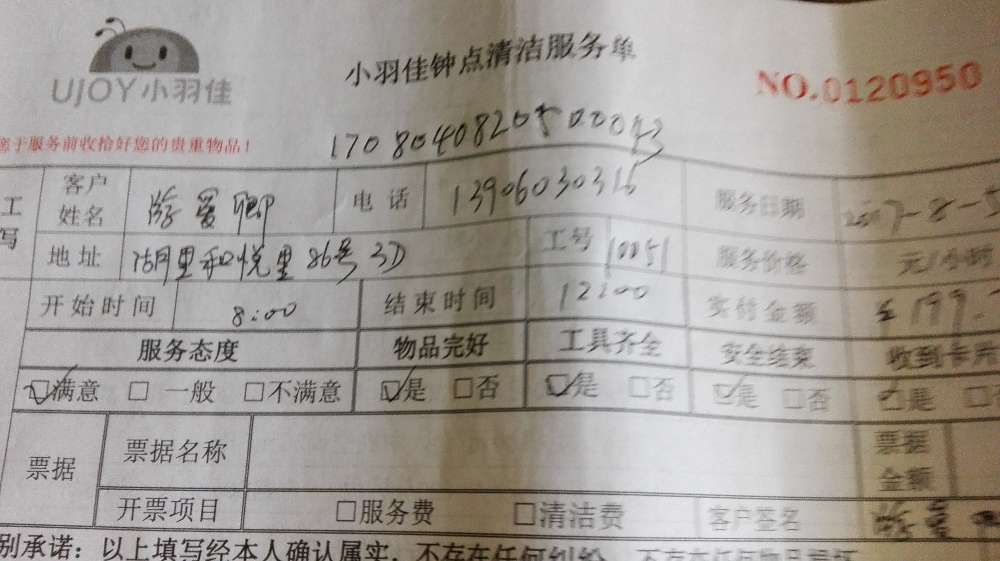 UJOY小羽佳
小羽佳钟点清洁服务单
NO.0120950
您于服务前收拾好您的贵重物品！
17080408205000013
工 客户姓名 游 电话 13906030316 服务日期 2017-8-5
写 地址 湖里和悦里86号3D 工号 10051 服务价格 元/小时
开始时间 8:00 结束时间 12:00 实付金额 ￥199
服务态度 物品完好 工具齐全 安全结束 收到卡片
☑满意 □一般 □不满意 ☑是 □否 ☑是 □否 ☑是 □否 ☑是
票据 票据名称 票据金额
开票项目 □服务费 □清洁费 客户签名 游
别承诺：以上填写经本人确认属实，不存在任何纠纷，不存在任何物品损坏